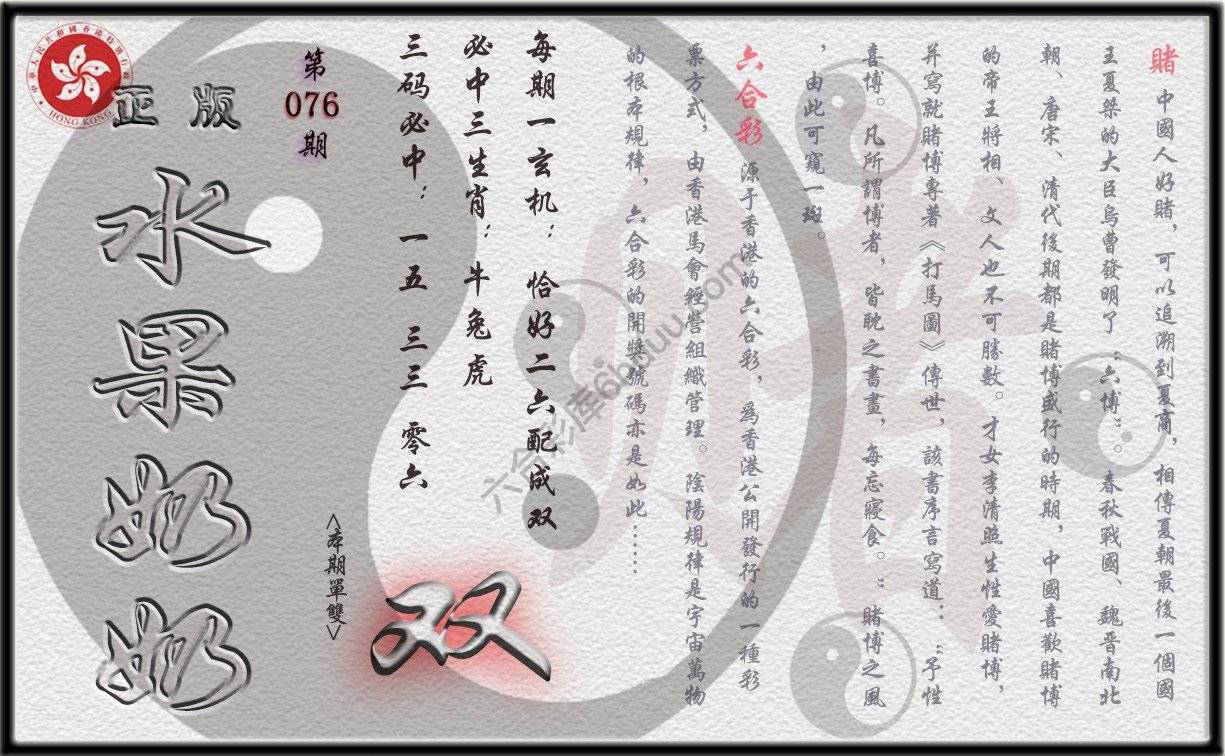 賭 中國人好賭，可以追溯到夏商，相傳夏朝最後一個國
王夏桀的大臣烏曹發明了“六博”。春秋戰國、魏晋南北
朝、唐宋、清代後期都是賭博盛行的時期，中國喜歡賭博
的帝王將相、文人也不可勝數。才女李清照生性愛賭博，
并寫就賭博專著《打馬圖》傳世，該書序言寫道：“予性
喜博。凡所謂博者，皆耽之書畫，每忘寢食。”賭博之風
，由此可窺一斑。
六合彩 源于香港的六合彩，爲香港公開發行的一種彩
票方式，由香港馬會經營組織管理。陰陽規律是宇宙萬物
的根本規律，六合彩的開獎號碼亦是如此……
每期一玄机：恰好二六配成双
必中三生肖：牛兔虎
三码必中：一五 三三 零六
<本期單雙>
双
第
076
期
正版
水果奶奶
HONG KONG
六合彩库6hduu.com